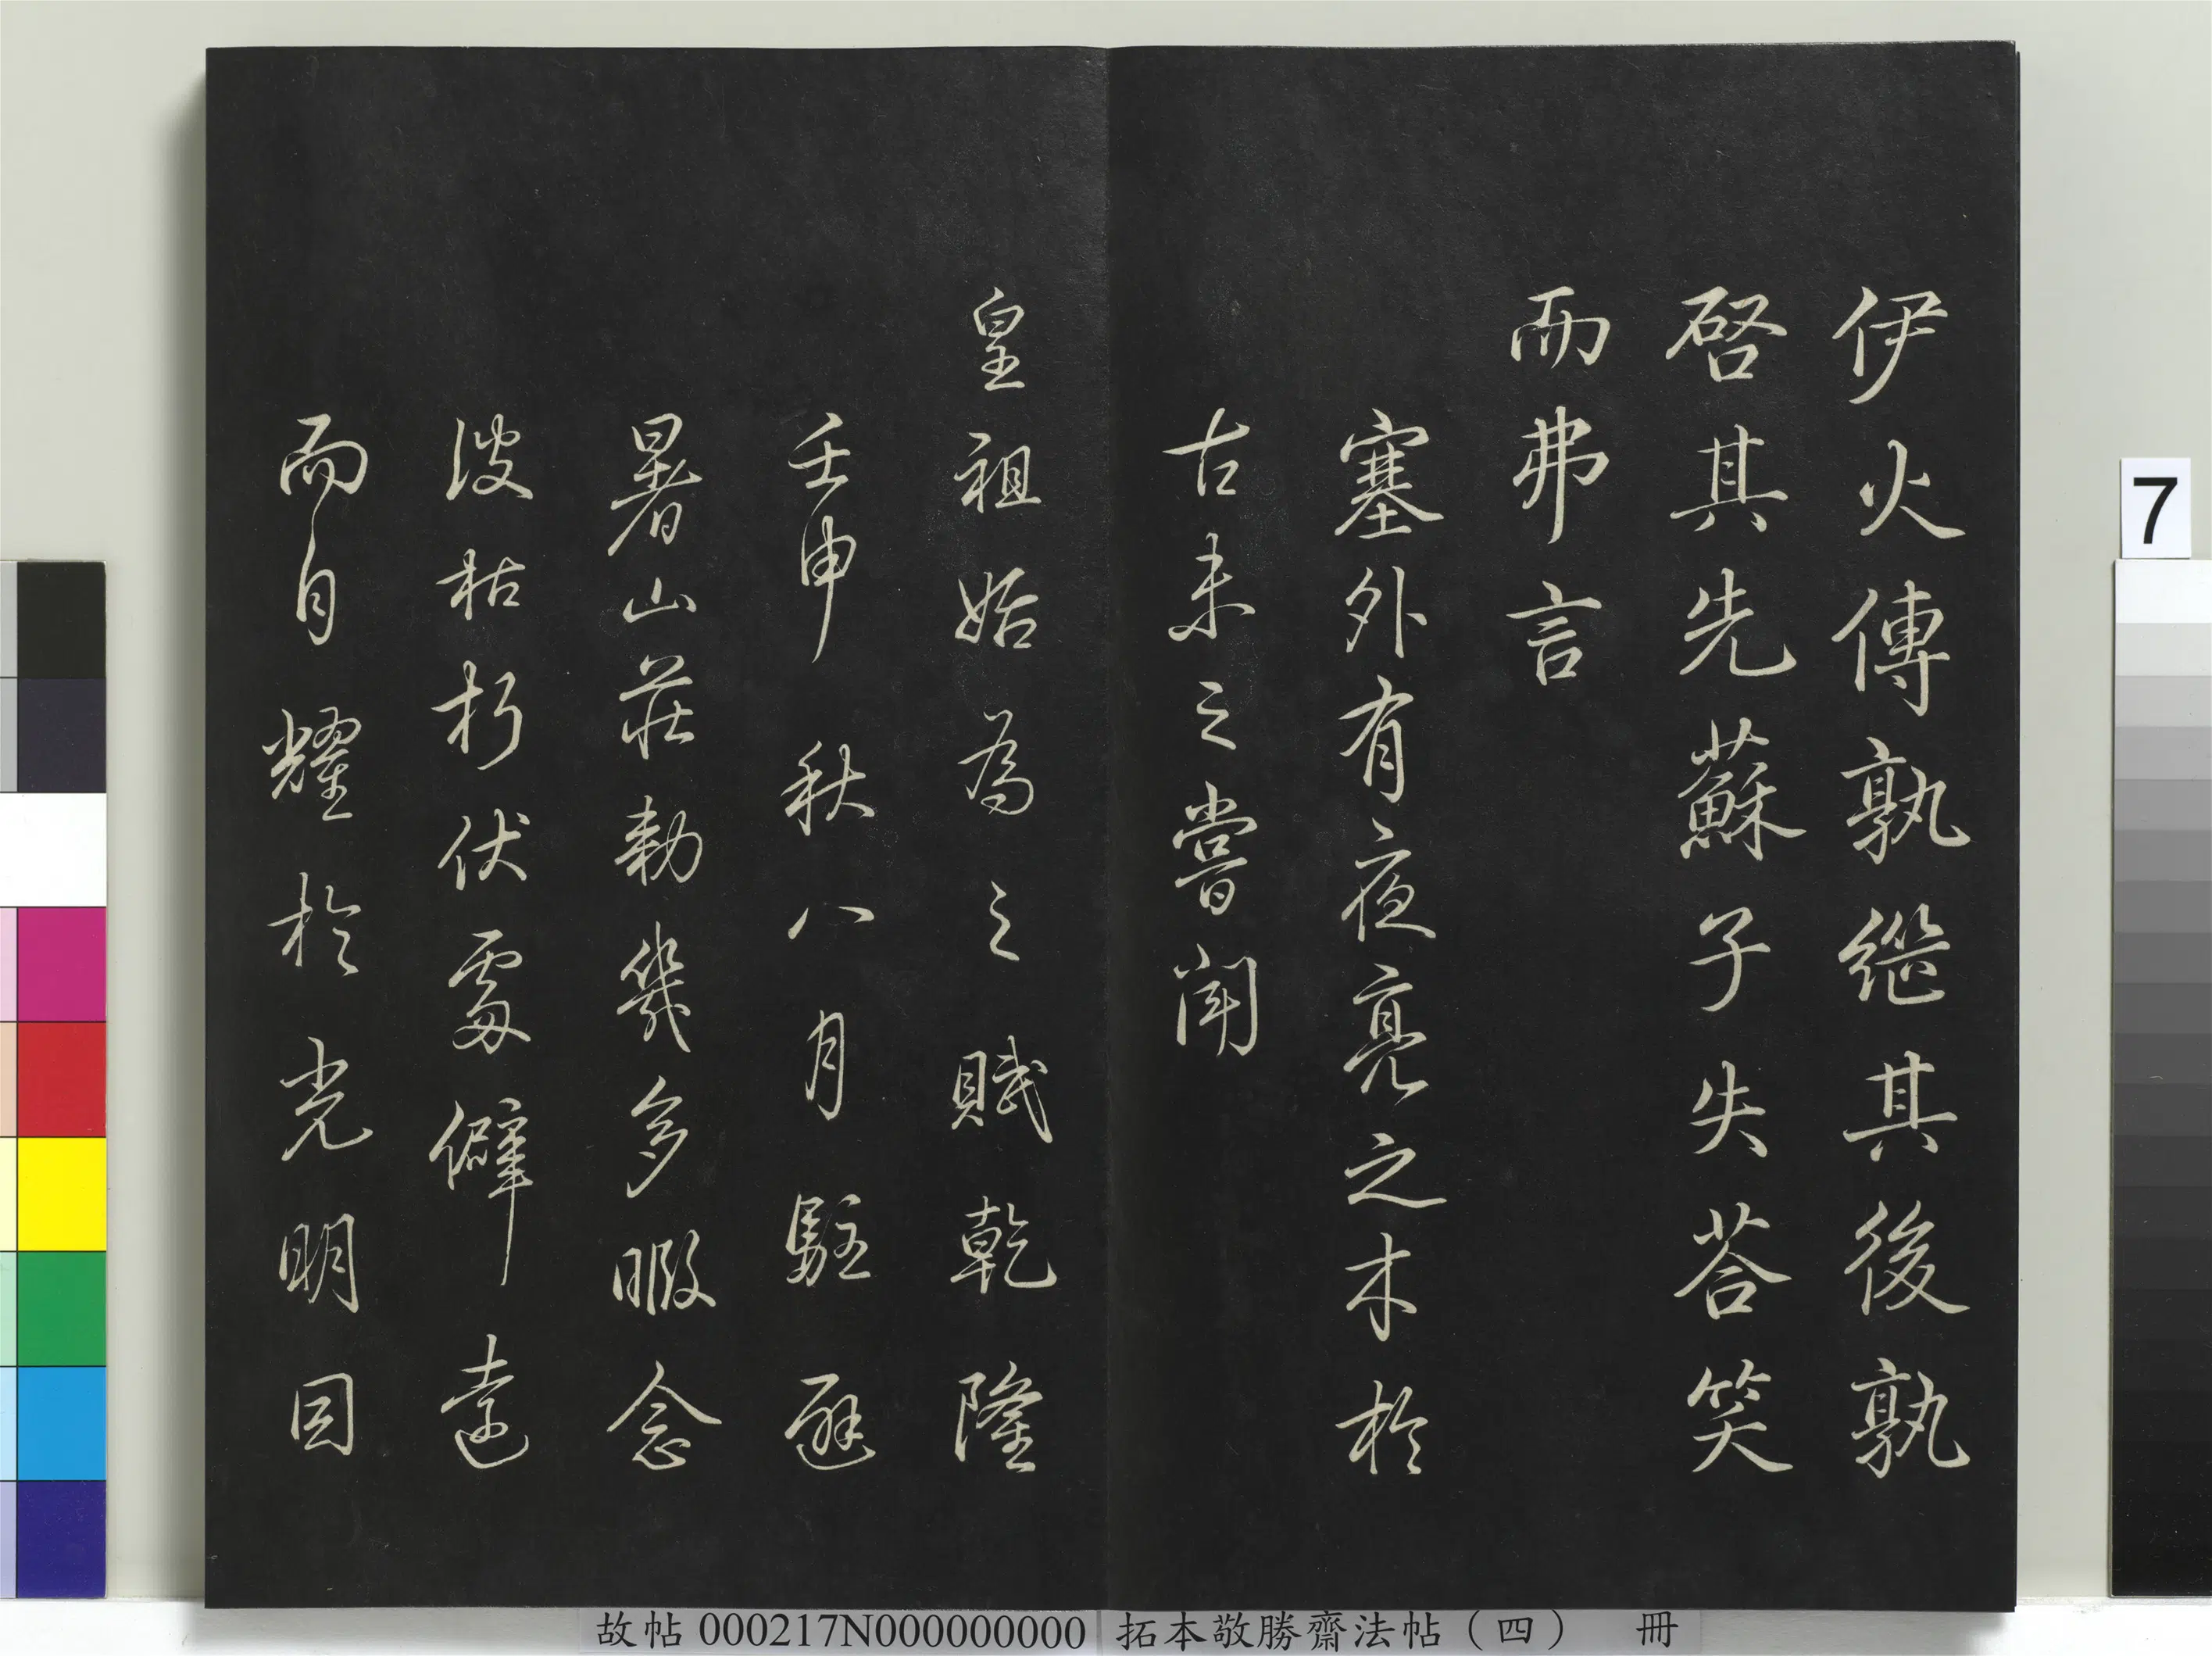 伊火傳孰繼其後孰
啓其先蘇子失荅笑
而弗言
塞外有夜亮之木於
古未之嘗聞
皇祖始為之賦乾隆
壬申秋八月駐避
暑山莊勅幾多暇念
彼枯朽伏處僻遠
而自耀於光明因
7
故帖 000217N000000000 拓本敬勝齋法帖（四） 冊